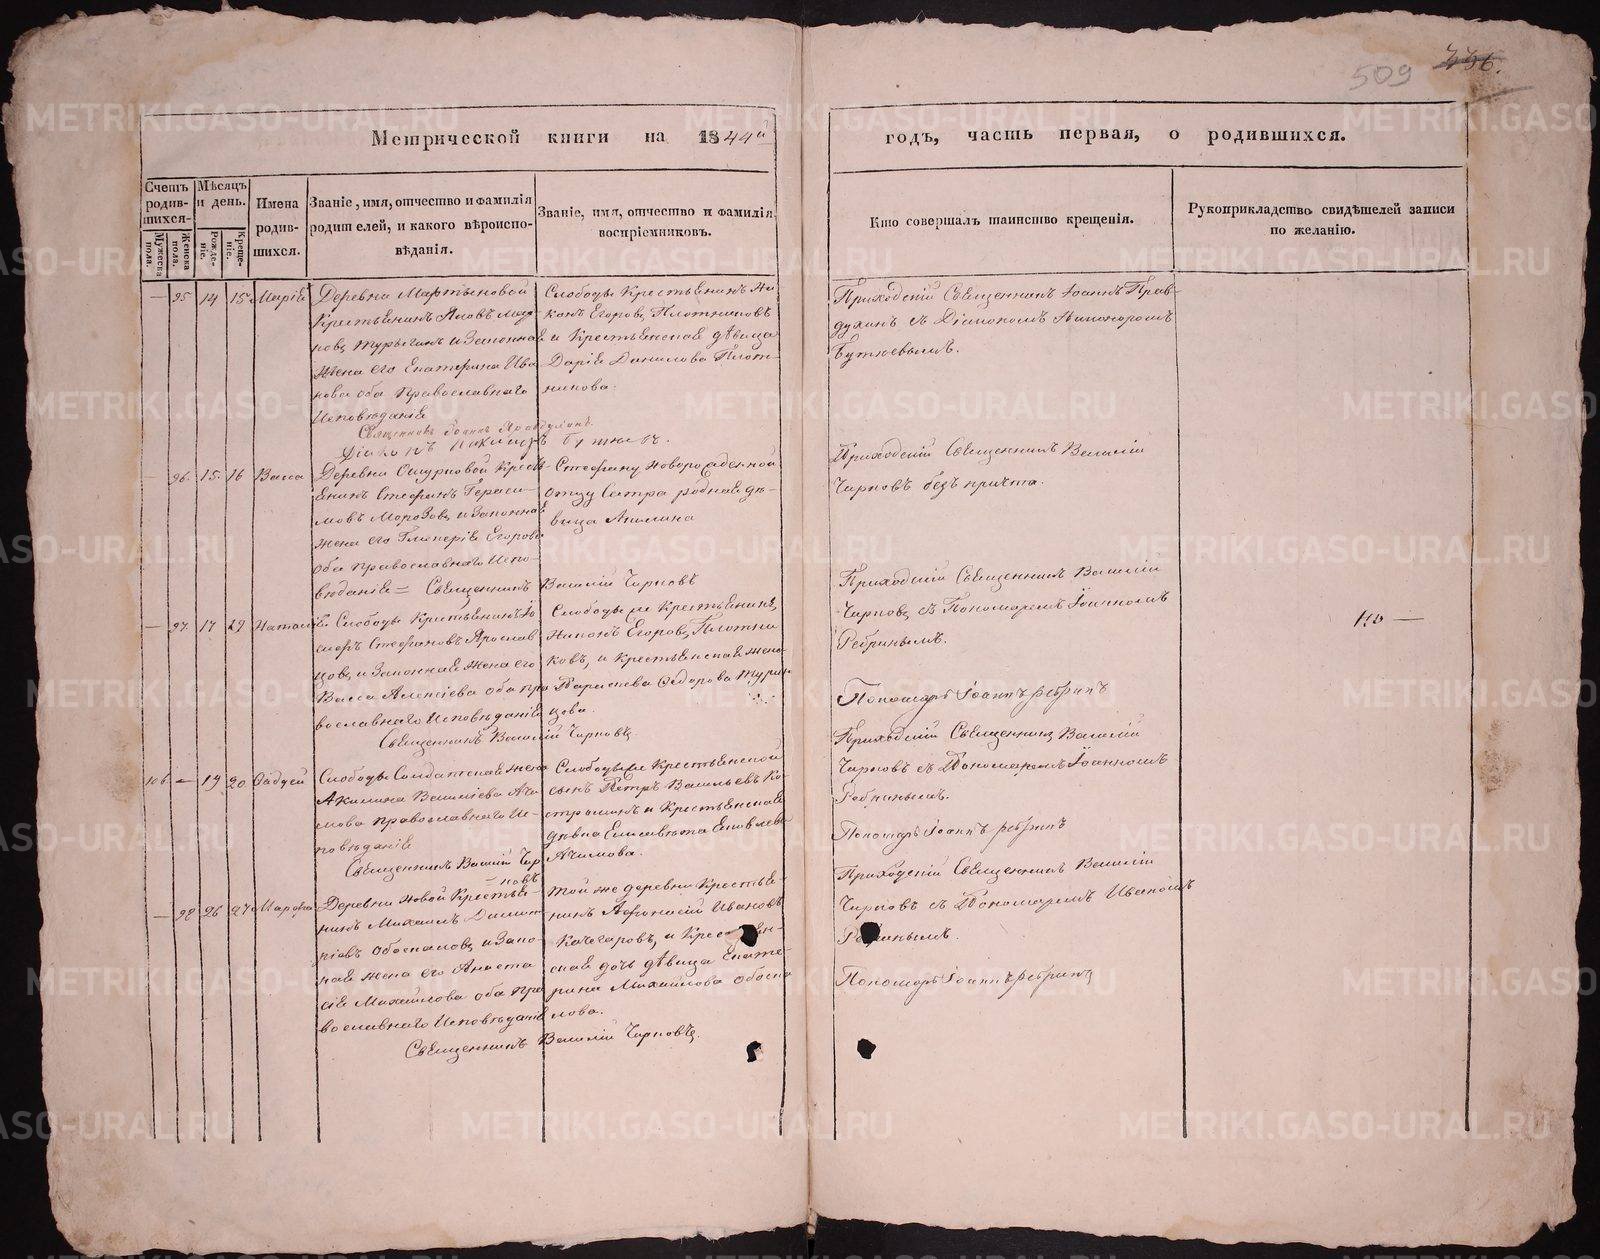 509 436.
Метрической книги на 1844й годъ, часть первая, о родившихся.
Счетъ родившихся.
Мужеска пола.
Женска пола.
Мѣсяцъ и день.
Рожденіе.
Крещеніе.
Имена родившихся.
Званіе, имя, отчество и фамилія
родителей, и какого вѣроиспо-
вѣданія.
Званіе, имя, отчество и фамилія
воспріемниковъ.
Кто совершалъ таинство крещенія.
Рукоприкладство свидѣтелей записи
по желанію.
— 95 14 15 Марія
Деревни Мартыновой
Крестьянинъ
и Законная
жена его Екатерина Ива-
нова оба православнаго
Исповѣданія
Священникъ Іоаннъ Правдухинъ
Діаконъ
Слободы Крестьянинъ Ни-
конъ Егоровъ Плотниковъ
и Крестьянская дѣвица
Дарія Данилова Плот-
никова.
Приходскій Священникъ Іоаннъ Прав-
духинъ съ Діакономъ Никаноромъ
— 96. 15. 16 Васса
Деревни Ошурковой Кресть-
янинъ Стефанъ Гераси-
мовъ Морозовъ и Законная
жена его Гликерія Егорова
оба православнаго Испо-
вѣданія = Священникъ Василій Чирковъ
Стефану новорожденной
отцу Сестра родная дѣ-
вица Акилина
Приходскій Священникъ Василій
Чирковъ безъ причта.
— 97. 17 19 Наталія
Слободы Крестьянинъ Іо-
сифъ Стефановъ Ярослав-
цовъ и Законная жена его
Васса Алексіева оба пра-
вославнаго Исповѣданія
Священникъ Василій Чирковъ
Слободы же Крестьянинъ
Никонъ Егоровъ Плотни-
ковъ, и Крестьянская жена
Параскева Ѳедорова
Приходскій Священникъ Василій
Чирковъ съ Пономаремъ Іоанномъ
Ребринымъ.
Пономарь Іоаннъ Ребринъ
106. — 19 20 Ѳаддей
Слободы Солдатская жена
Акилина Василіева Аки-
мова православнаго Ис-
повѣданія
Священникъ Василій Чир-
ковъ
Слободы же Крестьянской
сынъ Петръ Васильевъ
и Крестьянская
дѣвка Елисавета Яковлева
Акимова.
Приходскій Священникъ Василій
Чирковъ съ Пономаремъ Іоанномъ
Ребринымъ.
Пономарь Іоаннъ Ребринъ
— 98 26 27 Марѳа
Деревни Новой Крестья-
нинъ Михаилъ
и Зако-
ная жена его Анаста-
сія Михайлова оба пра-
вославнаго Исповѣданія
Священникъ Василій Чирковъ.
Той же деревни Крестья-
нинъ Аѳонасій Ивановъ
Качегаровъ, и Крестьян-
ская дочь дѣвица Екате-
рина Михайлова
Приходскій Священникъ Василій
Чирковъ съ Пономаремъ Иваномъ
Ребринымъ.
Пономарь Іоаннъ Ребринъ
METRIKI.GASO-URAL.RU